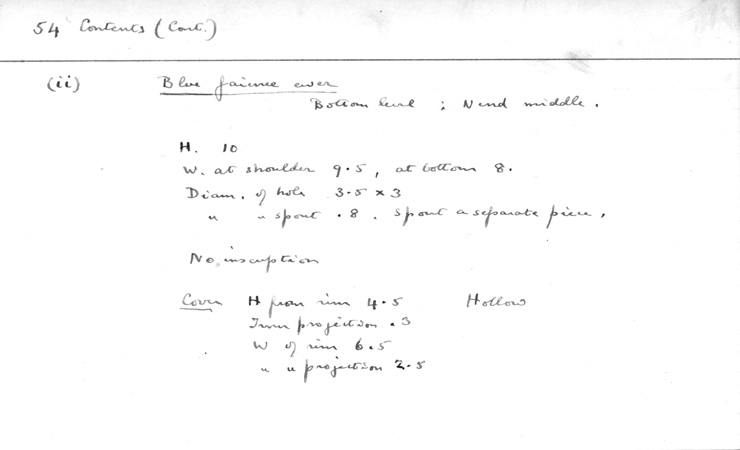 54 Contents (Cont.)
(ii) Blue faience ewer
Bottom level ; N end middle.
H. 10
W. at shoulder 9.5, at bottom 8.
Diam. of hole 3.5 x 3
" " spout .8. Spout a separate piece.
No inscription
Cover H from rim 4.5 Hollow
Inner projection .3
W of rim 6.5
" " projection 2.5